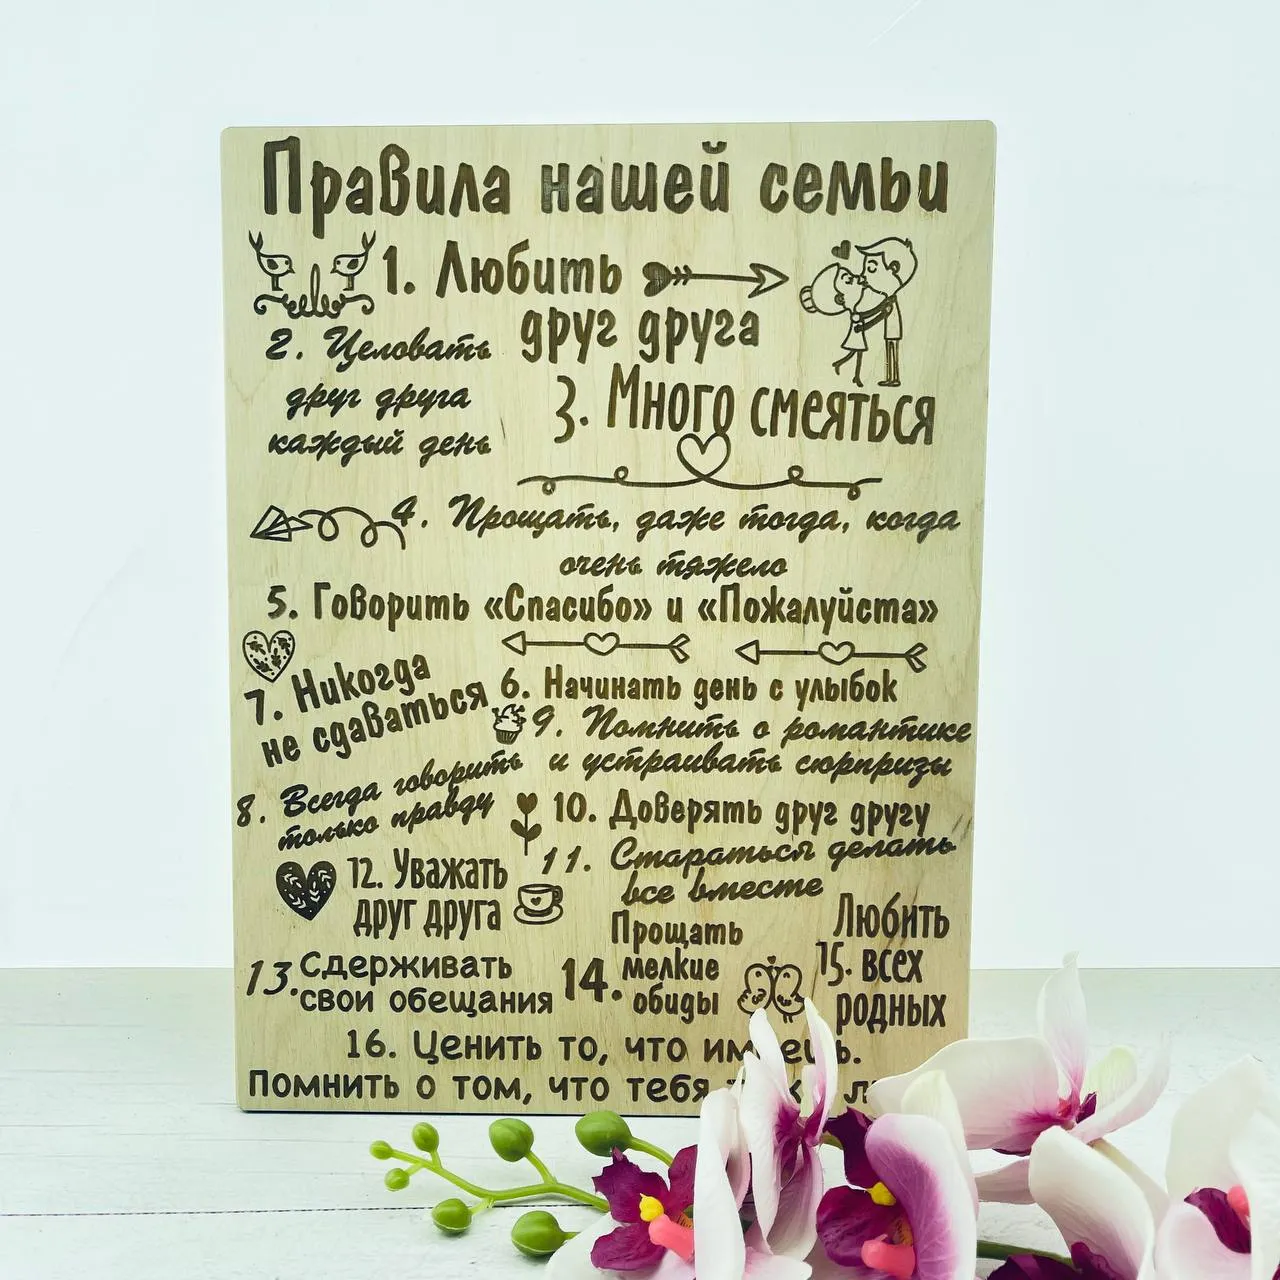 Правила нашей семьи
1. Любить
друг друга
2. Целовать
друг друга
каждый день
3. Много смеяться
4. Прощать, даже тогда, когда
очень тяжело
5. Говорить «Спасибо» и «Пожалуйста»
6. Начинать день с улыбок
7. Никогда
не сдаваться
8. Всегда говорить
только правду
9. Помнить о романтике
и устраивать сюрпризы
10. Доверять друг другу
11. Стараться делать
все вместе
12. Уважать
друг друга
13. Сдерживать
свои обещания
14. Прощать
мелкие
обиды
15. Любить
всех
родных
16. Ценить то, что имеешь.
Помнить о том, что тебя